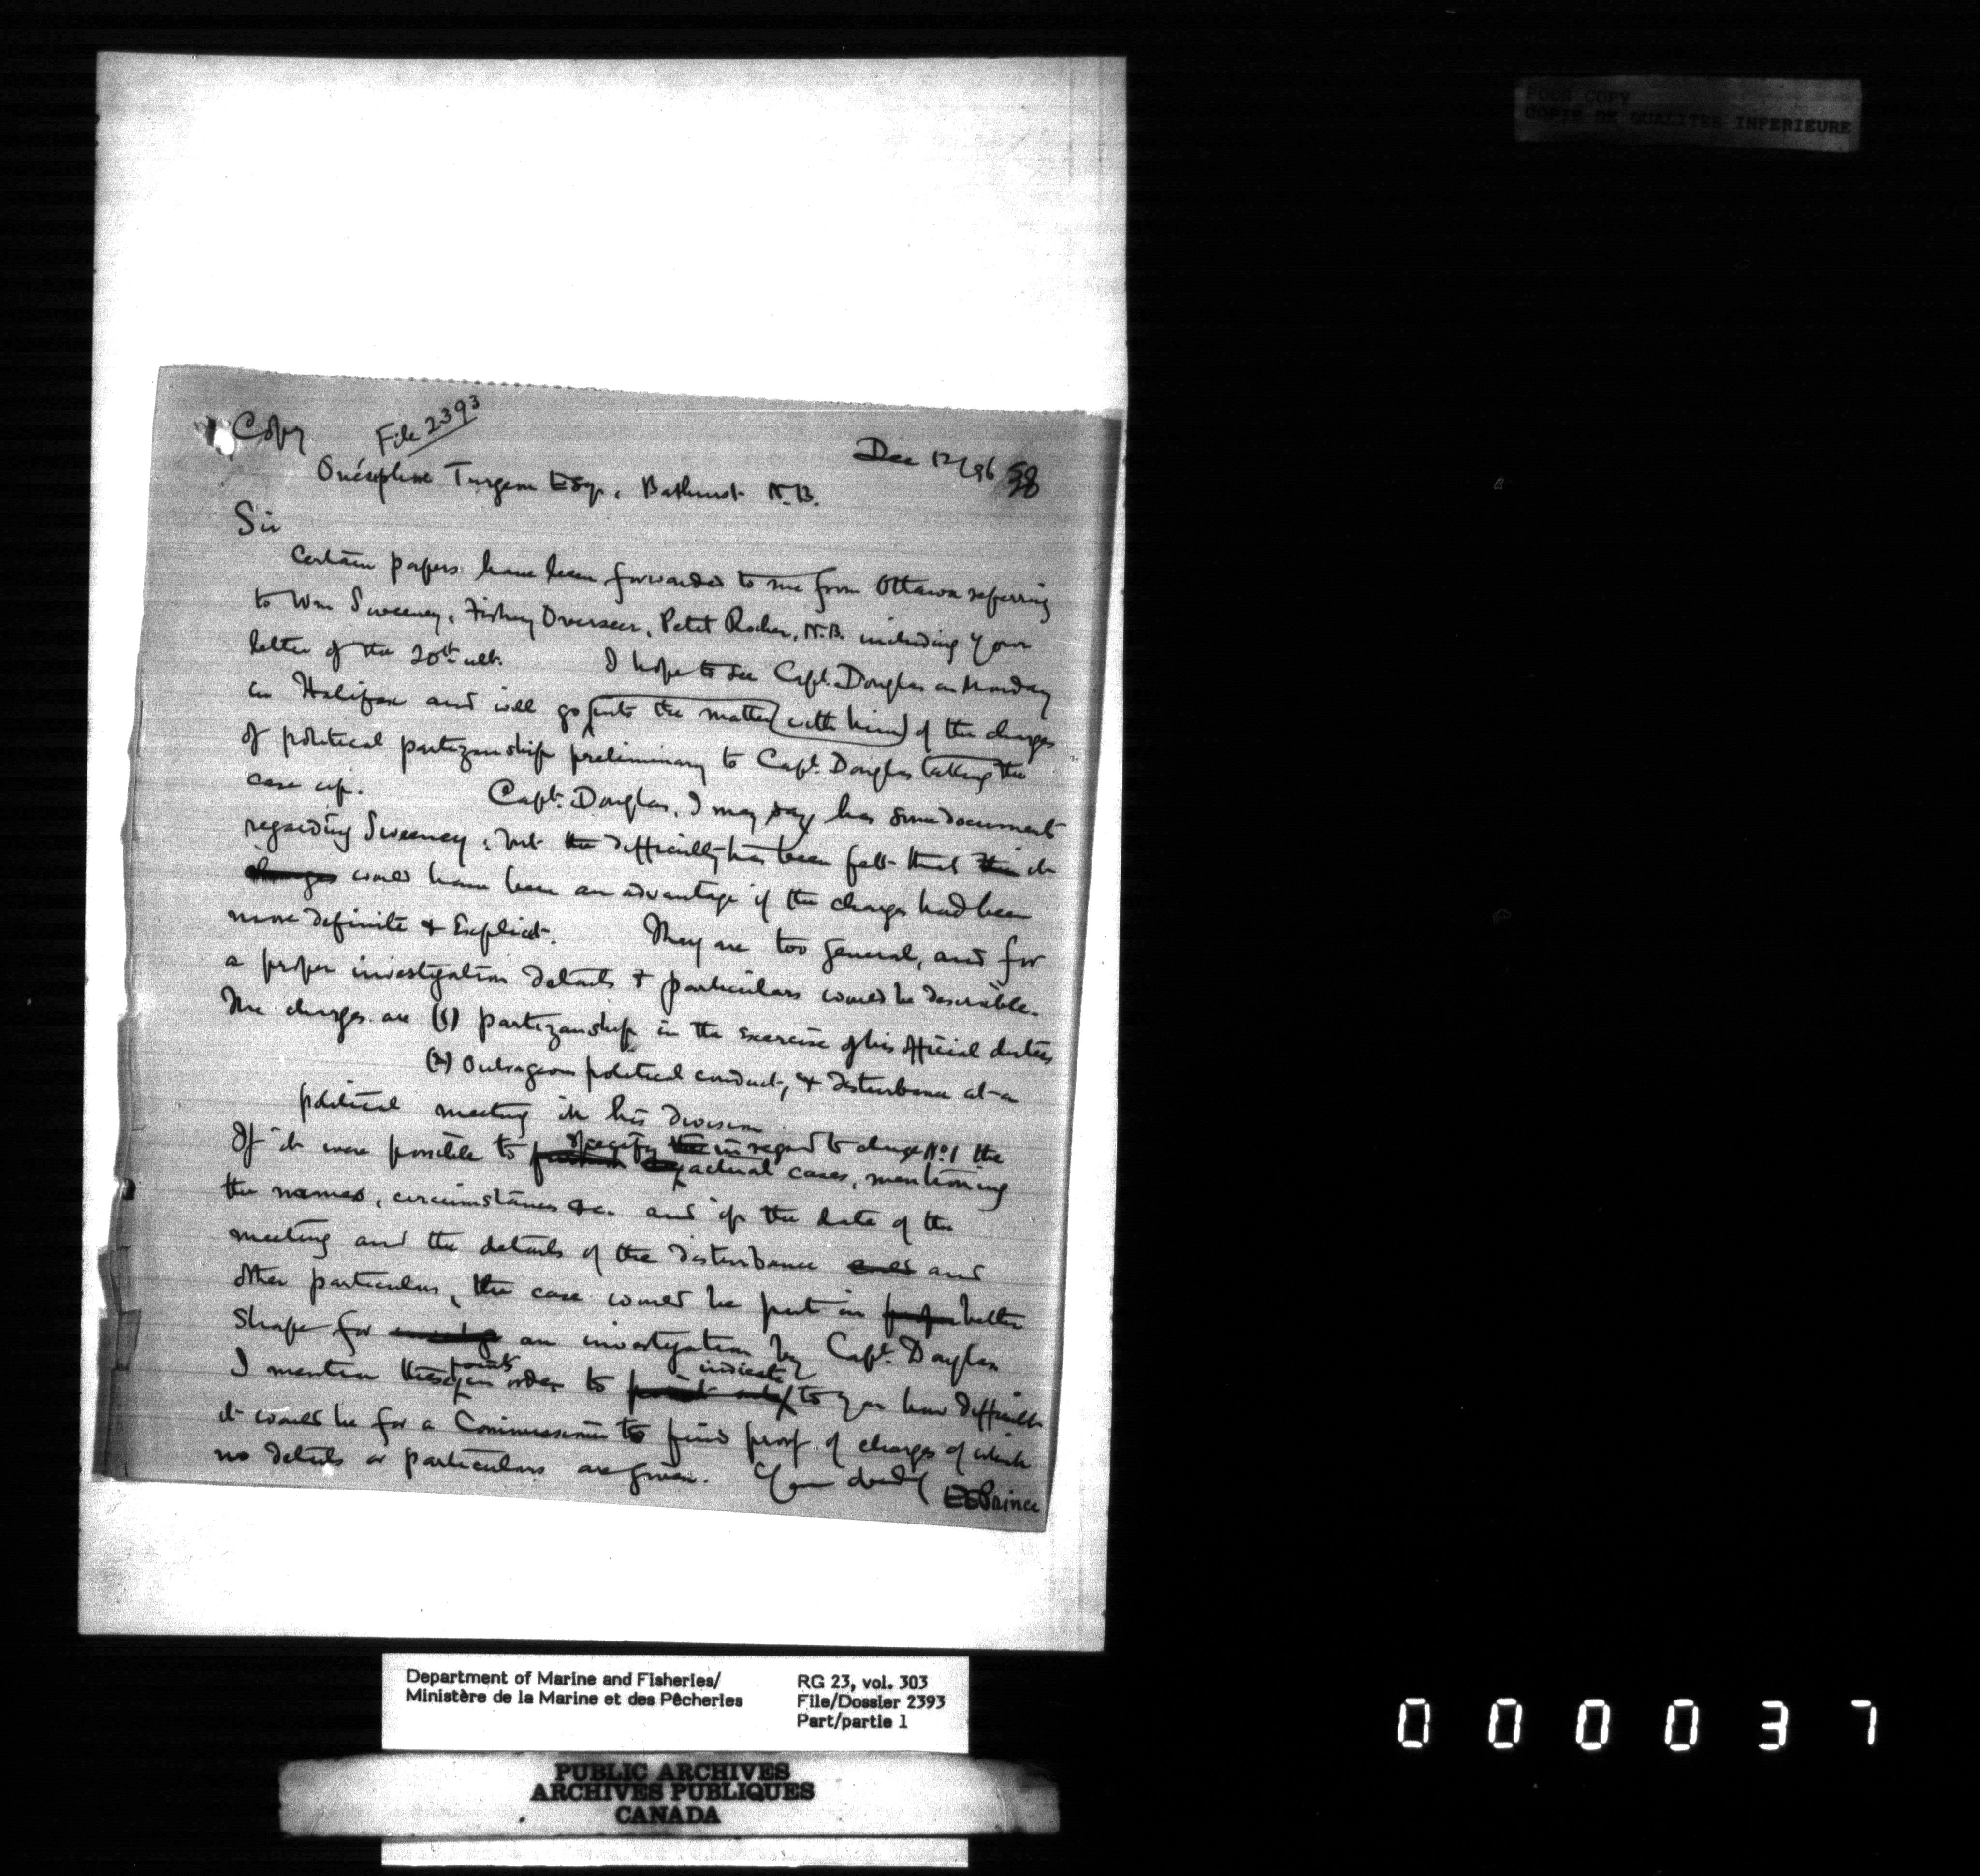 POOR COPY
COPIE DE QUALITEE INFERIEURE
Copy
File 2393
Dec 12/96
38
Onésiphore Turgeon Esq. Bathurst N.B.
Sir
Certain papers have been forwarded to me from Ottawa referring
to Wm Sweeney, Fishery Overseer, Petit Rocher, N.B. including your
letter of the 20th ult. I hope to see Capt. Douglas on Monday
in Halifax and will go into the matter with him of the charges
of political partizanship preliminary to Capt. Douglas taking the
case up. Capt. Douglas, I may say has some documents
regarding Sweeney, but the difficulty has been felt that the it
charges would have been an advantage if the charges had been
more definite & Explicit. They are too general, and for
a proper investigation details & particulars would be desirable.
The charges are (1) partizanship in the exercise of his official duties
(2) Outrageous political conduct, & disturbance at a
political meeting in his division
If it were possible to specify the in regard to charge No. 1 the
actual cases, mentioning
the names, circumstances &c. and if the date of the
meeting and the details of the disturbance and
other particulars, the case would be put in proper better
shape for an investigation by Capt. Douglas
I mention these points in order to point out indicate to you how difficult
it would be for a Commission to find proof of charges of which
no details or particulars are given. Yours
EEPrince
Department of Marine and Fisheries/
Ministère de la Marine et des Pêcheries
RG 23, vol. 303
File/Dossier 2393
Part/partie 1
PUBLIC ARCHIVES
ARCHIVES PUBLIQUES
CANADA
000037